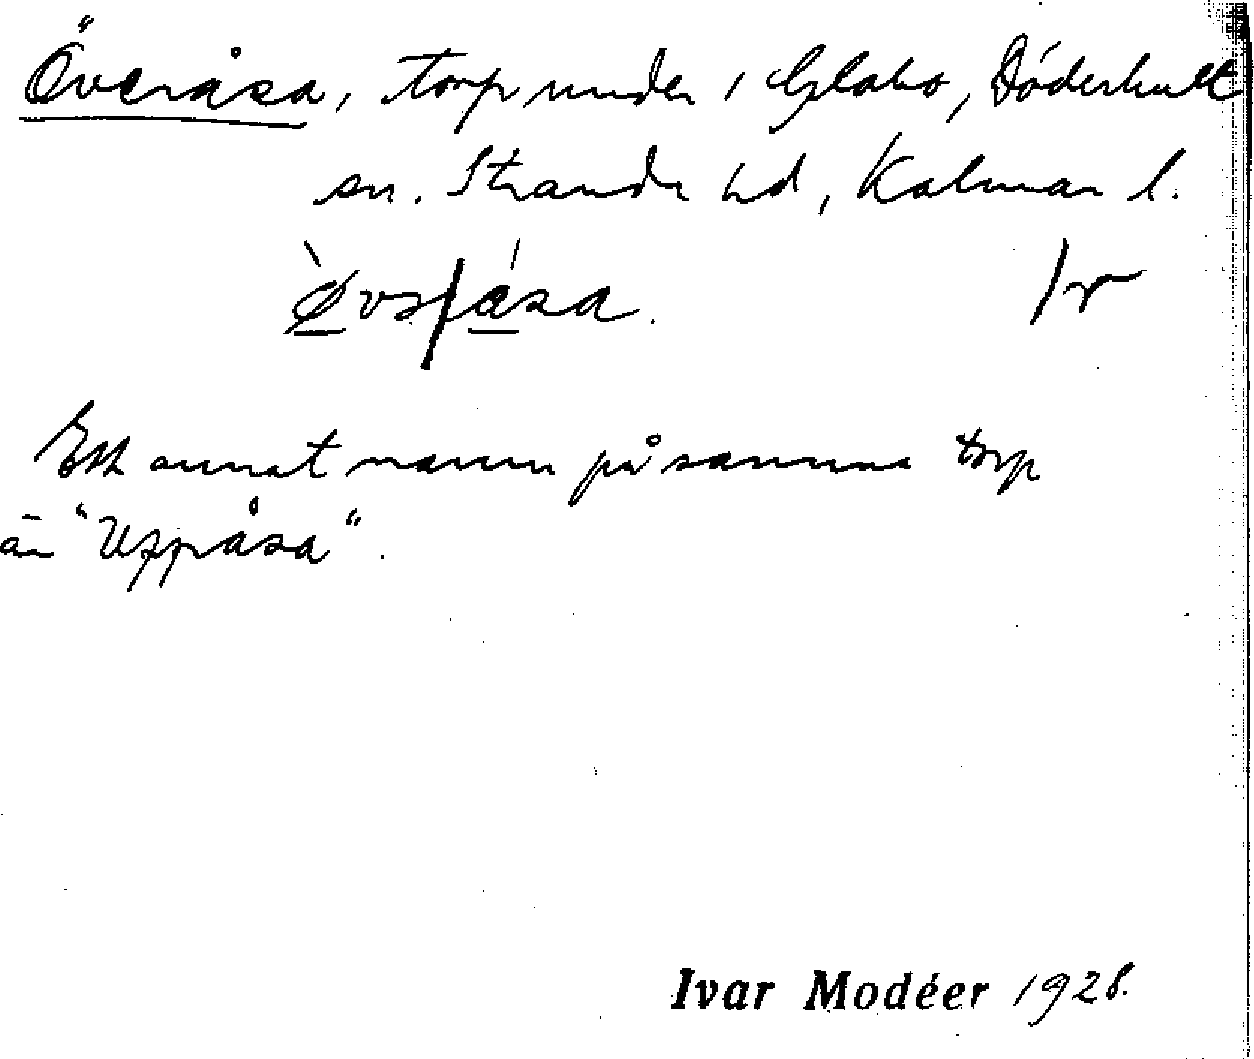 Överåsa, torp under 1 Glabo, Döderhult
sn. Stranda hd, Kalmar l.
Ett annat namn på samma torp
är "Uppåsa".
Ivar Modéer 1928.